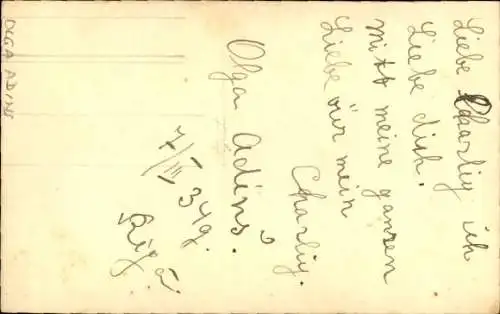 Liebe Charliy ich
Liebe dich.
Mitt meine ganzen
Liebe vür mein
Charliy.
Olga Adins.
7/III, 34g.
Rīgā.
OLGA ADINS